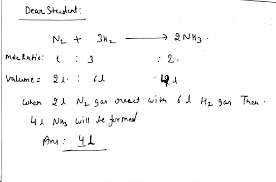 Dear Student:
N₂ + 3H₂ ⟶ 2NH₃.
Mole Ratio: 1 : 3 : 2.
Volume = 2l : 6l 4l
when 2l N₂ gas react with 6l H₂ gas Then.
4l NH₃ will be formed
Ans: 4l